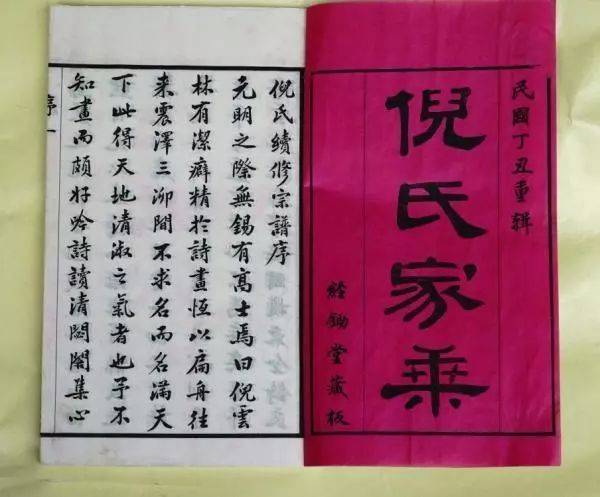 民國丁丑重輯
倪氏家乘
經鋤堂藏板
倪氏續修宗譜序
元明之際無錫有高士焉曰倪雲
林有潔癖精於詩畫恆以扁舟往
来震澤三泖間不求名而名滿天
下此得天地清淑之氣者也予不
知畫而頗好吟詩讀清閟閣集心
序一